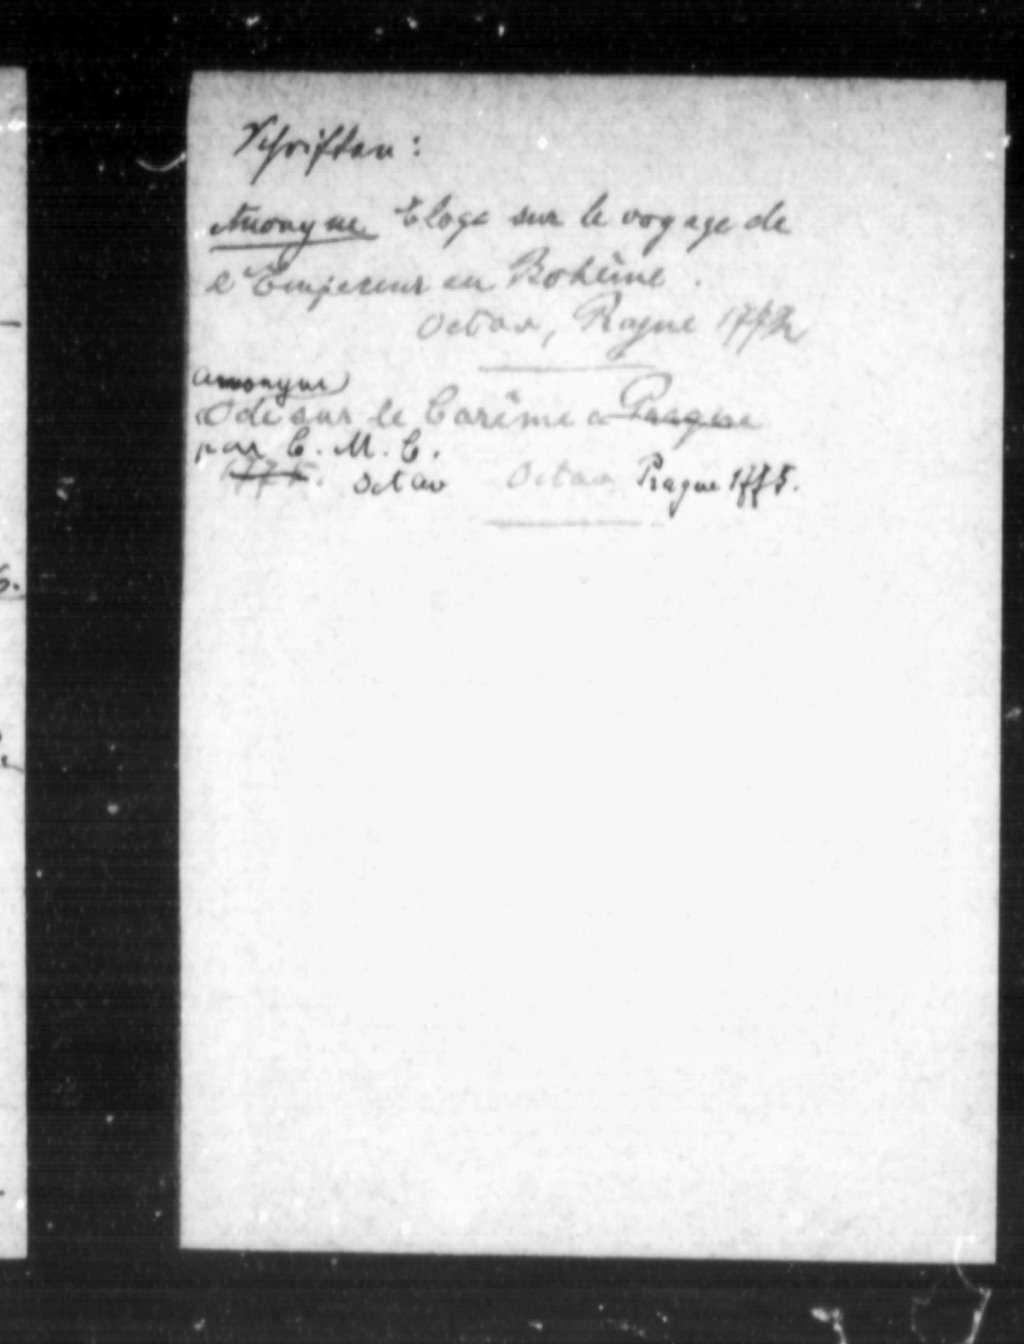 Schriften:
Anonyme Eloge sur le voyage de
l'Empereur en Bohême.
Octav, Prague 1772
anonyme)
Ode sur le Carême a Prague
par C. M. C.
1775. octav Octav Prague 1775.